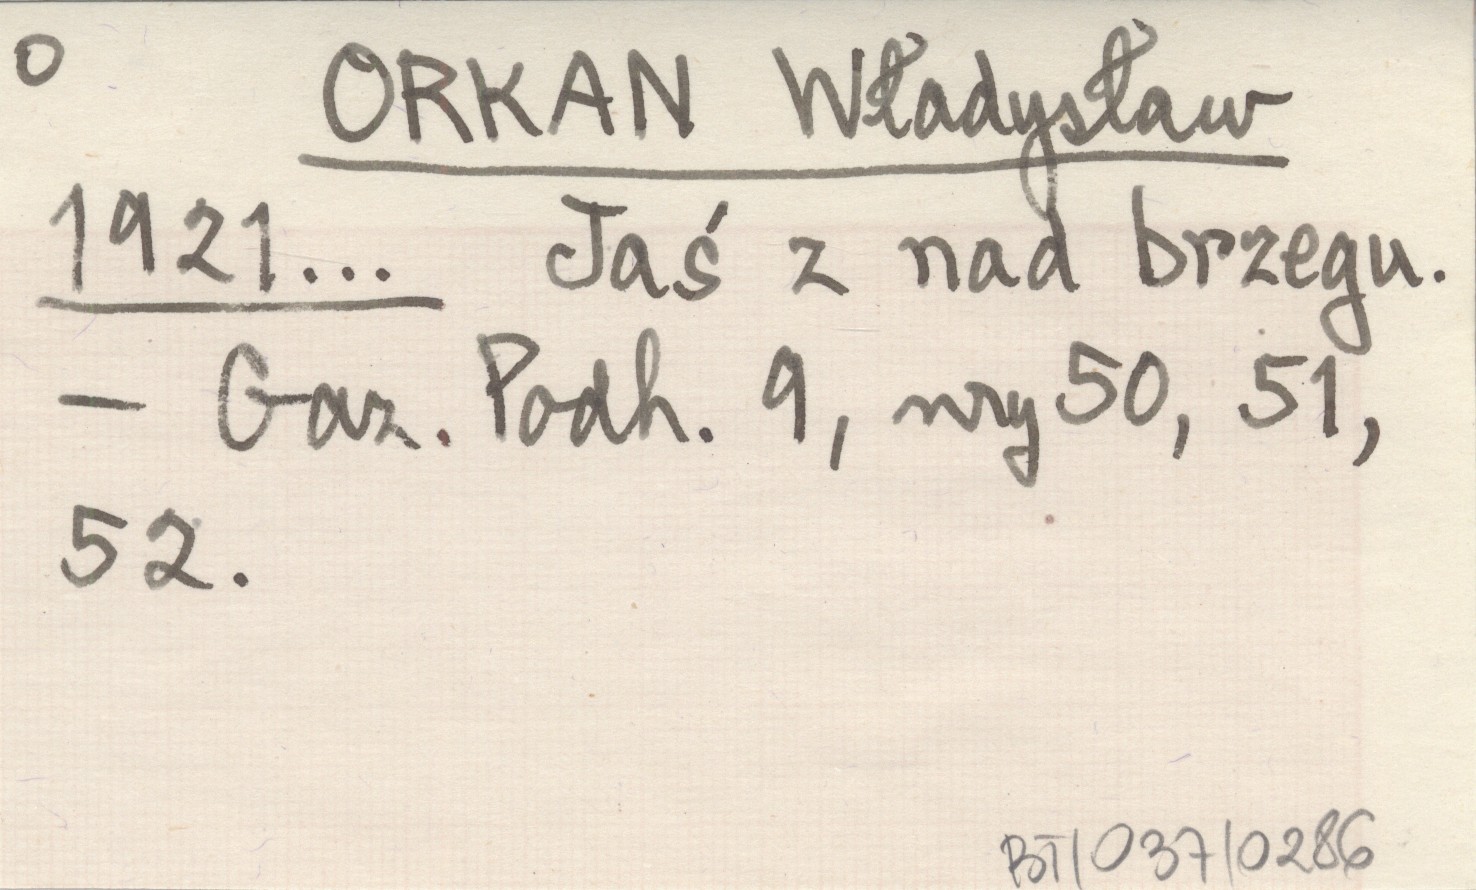 O
ORKAN Władysław
1921... Jaś z nad brzegu.
— Gaz. Podh. 9, nry 50, 51,
52.
BT/037/0286